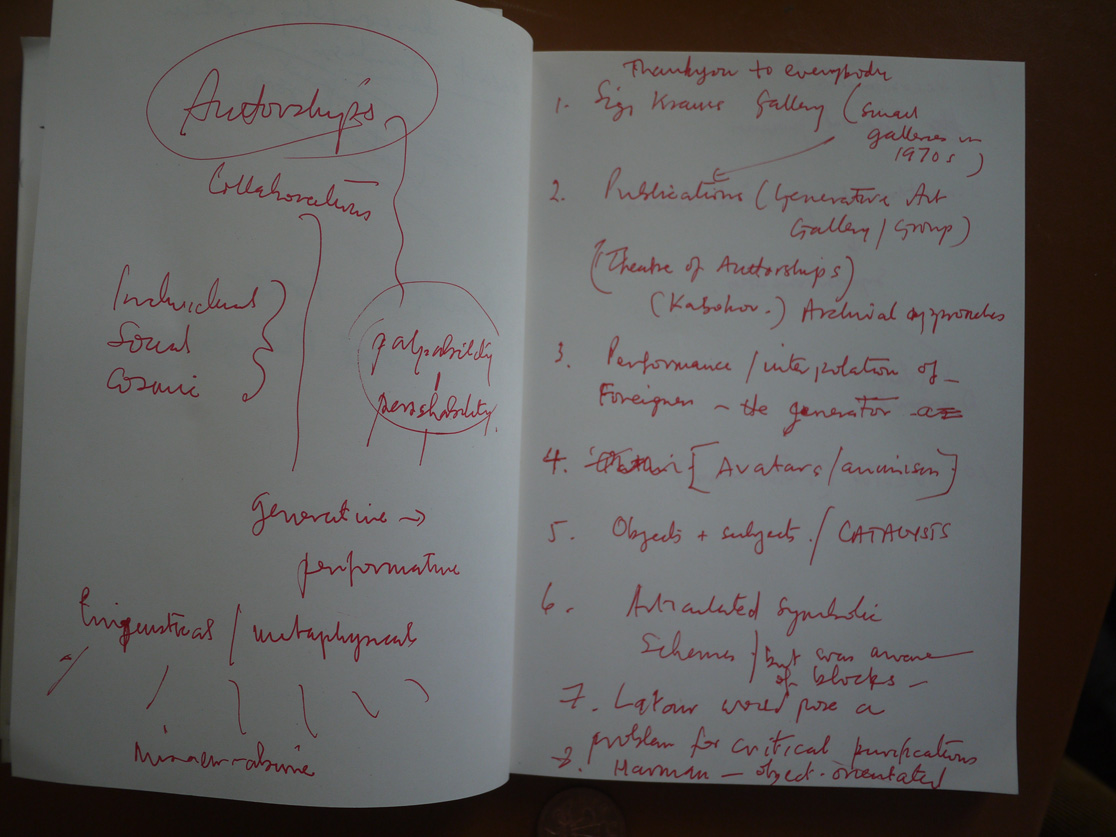 Autorships
Collaborations
Individual
Social
Cosmic
palpability
perishability.
Generative →
performative
linguistical / metaphysical
Mise-en-abime
Thankyou to everybody
1. Sigi Krauss Gallery (small
galleries in
1970s)
2. Publications (Generative Art
Gallery / Group)
(Theatre of Autorships)
(Kabakov.) Archival approaches
3. Performance / interpolation of
Foreigner – the generator
4. [Avatars / animism]
5. Objects + subjects. / CATALYSTS
6. Articulated symbolic
Schemes / but was aware
of blocks –
7. Latour would pose a
problem for critical purifications
8. Harman – object-orientated